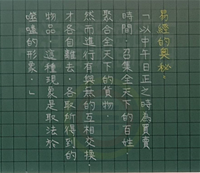 易經的奧秘，
「以中午日正之時為買賣
時間，召集全天下的百姓，
聚合全天下的貨物，
然而進行有與無的互相交換，
才各自離去，各取所得到的
物品，這種現象是取法於
噬嗑的形象。」